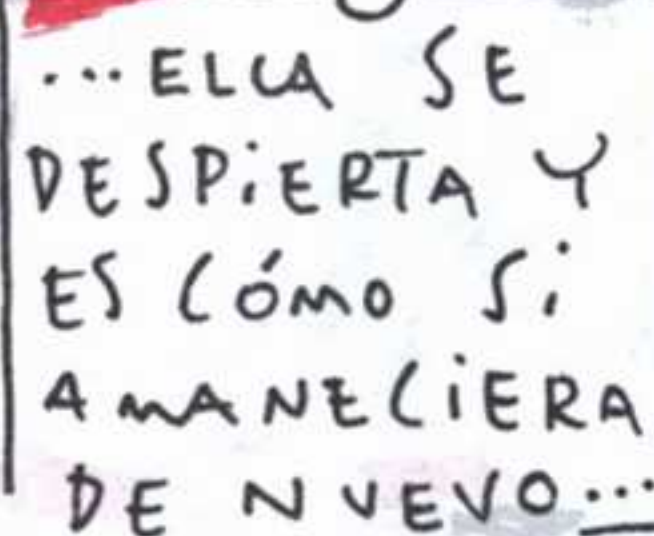 ...ELLA SE
DESPiERTA Y
ES CÓMO Si
AMANECiERA
DE NUEVO...